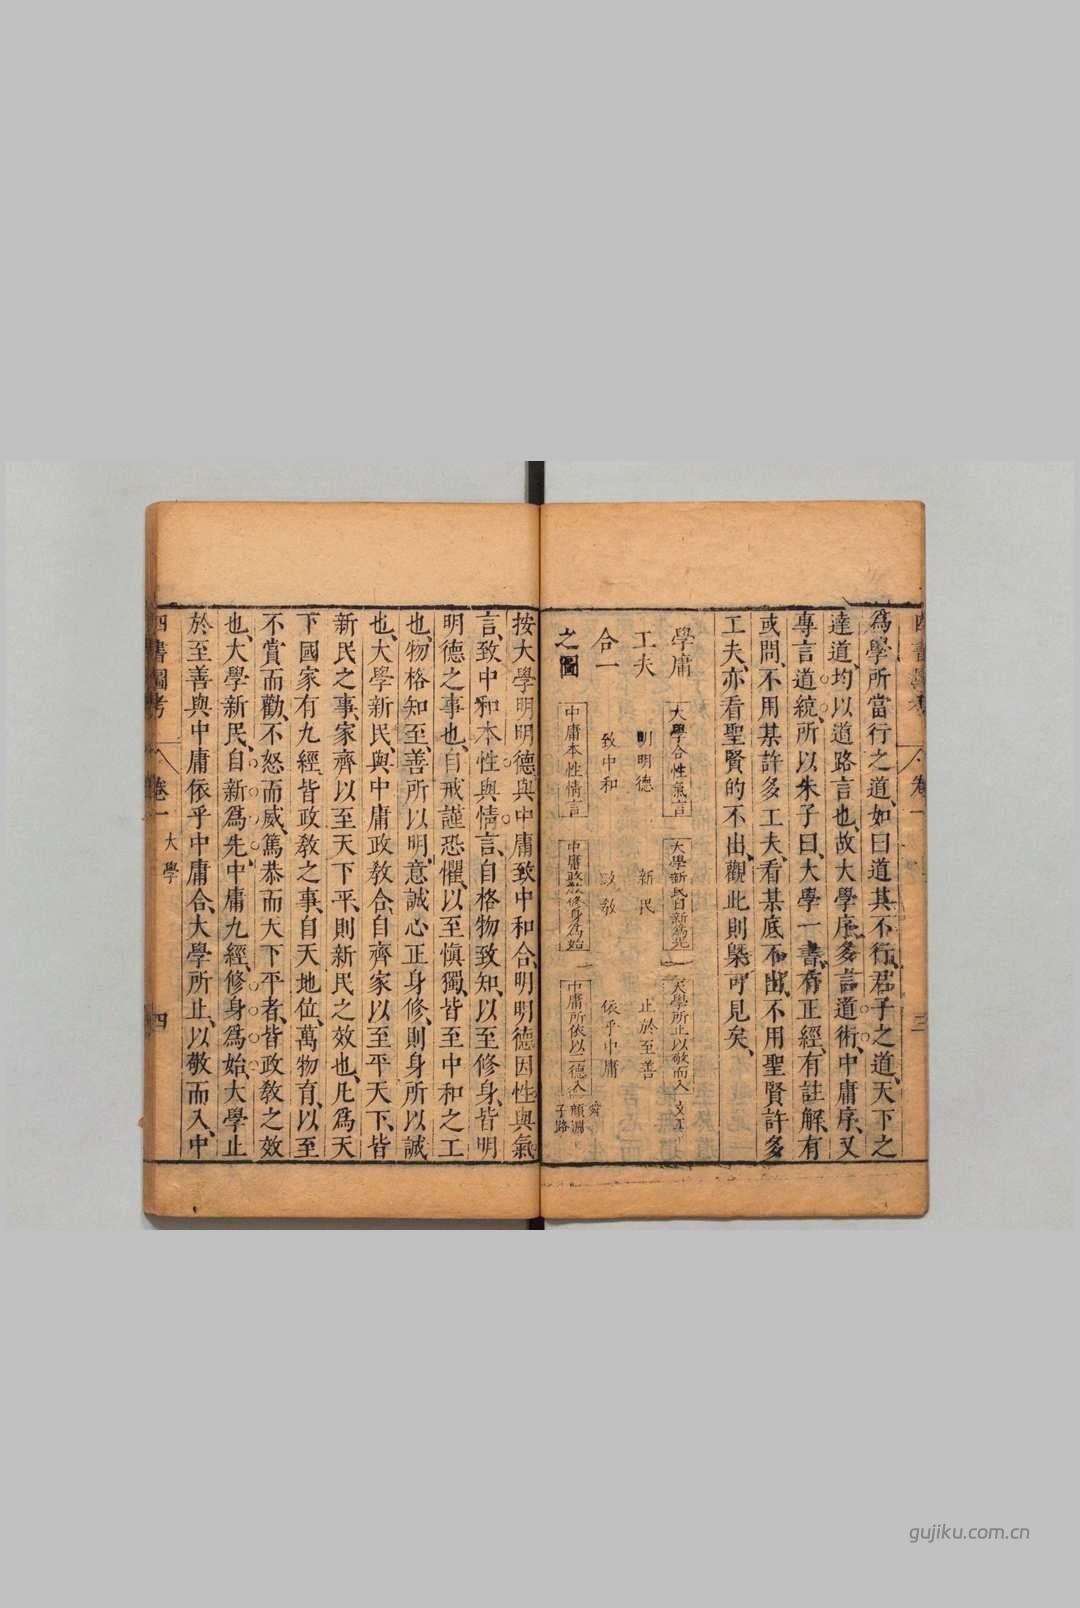 四書圖考
卷一
三
爲學所當行之道、如曰道其不行、君子之道、天下之
達道、均以道路言也、故大學序、多言道術、中庸序、又
專言道統、所以朱子曰、大學一書、有正經、有註解、有
或問、不用某許多工夫、看某底不出、不用聖賢許多
工夫、亦看聖賢的不出、觀此則槩可見矣、
學庸
工夫
合一
之圖
大學合性氣言
明明德
致中和
中庸本性情言
大學新民自新爲先
新民
政教
中庸政教修身爲始
大學所止以敬而入
止於至善
依乎中庸
中庸所依以三德入
舜
顏淵
子路
按大學明明德、與中庸致中和合、明明德因性與氣
言、致中和本性與情言、自格物致知、以至修身、皆明
明德之事也、自戒謹恐懼、以至愼獨、皆至中和之工
也、物格知至、善所以明、意誠心正身修、則身所以誠
也、大學新民、與中庸政教合、自齊家以至平天下、皆
新民之事、家齊以至天下平、則新民之效也、凡爲天
下國家有九經、皆政敎之事、自天地位、萬物育、以至
不賞而勸、不怒而威、篤恭而天下平者、皆政敎之效
也、大學新民、自新爲先、中庸九經、修身爲始、大學止
於至善、與中庸依乎中庸合、大學所止、以敬而入、中
四書圖考
卷一
大學
四
gujiku.com.cn